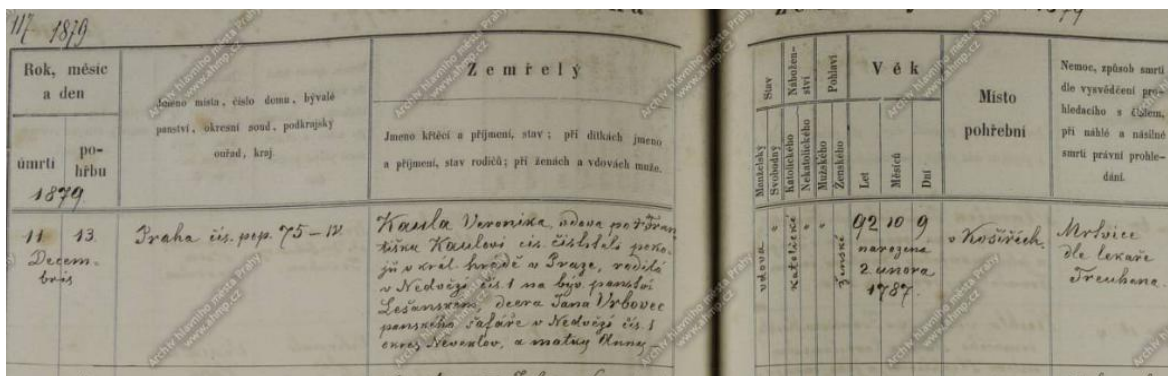 117 1879
1879
Rok, měsíc
a den
úmrtí
po-
hřbu
1879
Jmeno místa, číslo domu, bývalé
panství, okresní soud, podkrajský
ouřad, kraj
Zemřelý
Jmeno křtěcí a příjmení, stav; při dítkách jmeno
a příjmení, stav rodičů; při ženách a vdovách muže.
Stav
Manželský
Svobodný
Nábožen-
ství
Katolického
Nekatolického
Pohlaví
Mužského
Ženského
Věk
Let
Měsíců
Dní
Místo
pohřební
Nemoc, způsob smrti
dle vysvědčení pro-
hledacího s číslem,
při náhlé a násilné
smrti právní prohle-
dání.
11. 13.
Decem-
bris
Praha čís. pop. 75-IV
Kaula Veronika, vdova po Fran-
tišku Kaulovi cís. čističeli poko-
jů v král. hradě v Praze, rodilá
v Nedvězí čís. 1 na býv. panství
Lešanském, dcera Jana Vrbovec
panského šafáře v Nedvězí čís. 1
okres Neveklov, a matky Anny
vdova
Katolické
Ženské
92 10 9
narozena
2. února
1787.
v Košířích.
Mrtvice
dle lékaře
Archiv hlavního města Prahy
www.ahmp.cz